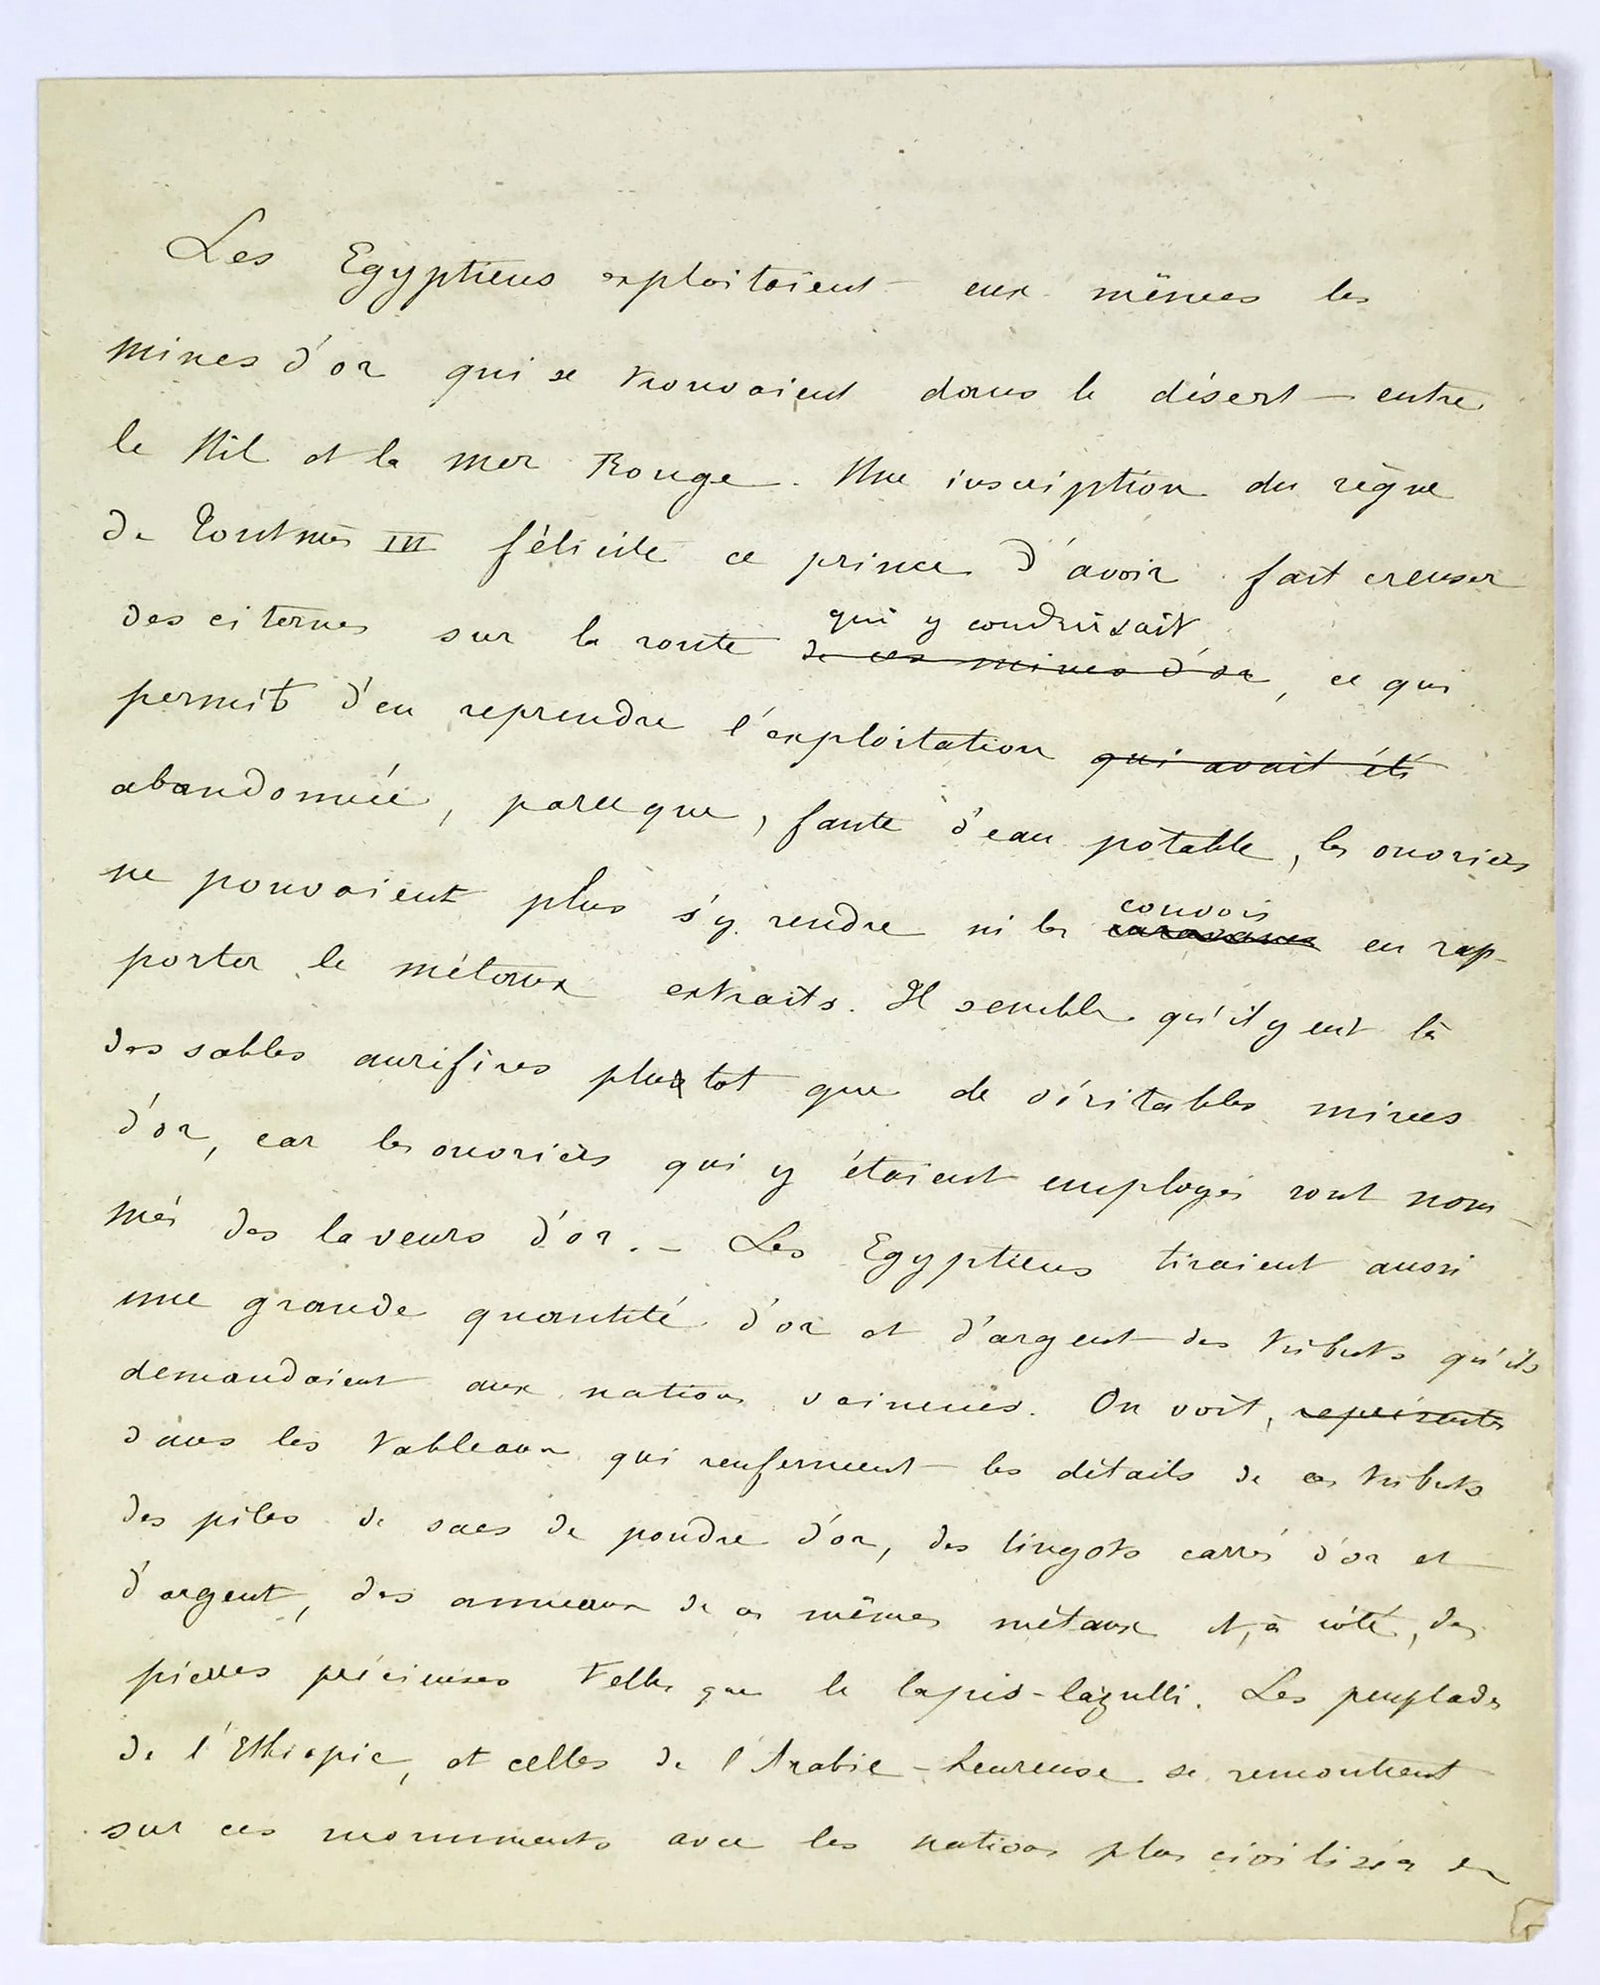 Les Egyptiens exploitaient eux mêmes les
mines d'or qui se trouvaient dans le désert entre
le Nil et la mer Rouge. Une inscription du règne
de Toutmès III félicite ce prince d'avoir fait creuser
qui y conduisait
des citernes sur la route de ces mines d'or, ce qui
permit d'en reprendre l'exploitation qui avait été
abandonnée, parceque, faute d'eau potable, les ouvriers
convois
ne pouvaient plus s'y rendre ni les caravanes en rap-
porter le métaux extraits. Il semble qu'il y eut là
des sables aurifères plutot que de véritables mines
d'or, car les ouvriers qui y étaient employés sont nom-
més des laveurs d'or. - Les Egyptiens tiraient aussi
une grande quantité d'or et d'argent des tributs qu'ils
demandaient aux nations vaincues. On voit, représentés
dans les tableaux qui renferment les détails de ces tributs
des piles de sacs de poudre d'or, des lingots carrés d'or et
d'argent, des anneaux de ces mêmes métaux et, à côté, des
pierres précieuses telles que le lapis-lazulli. Les peuplades
de l'Ethiopie, et celles de l'Arabie-heureuse se rencontrent
sur ces monuments avec les nations plus civilisées de